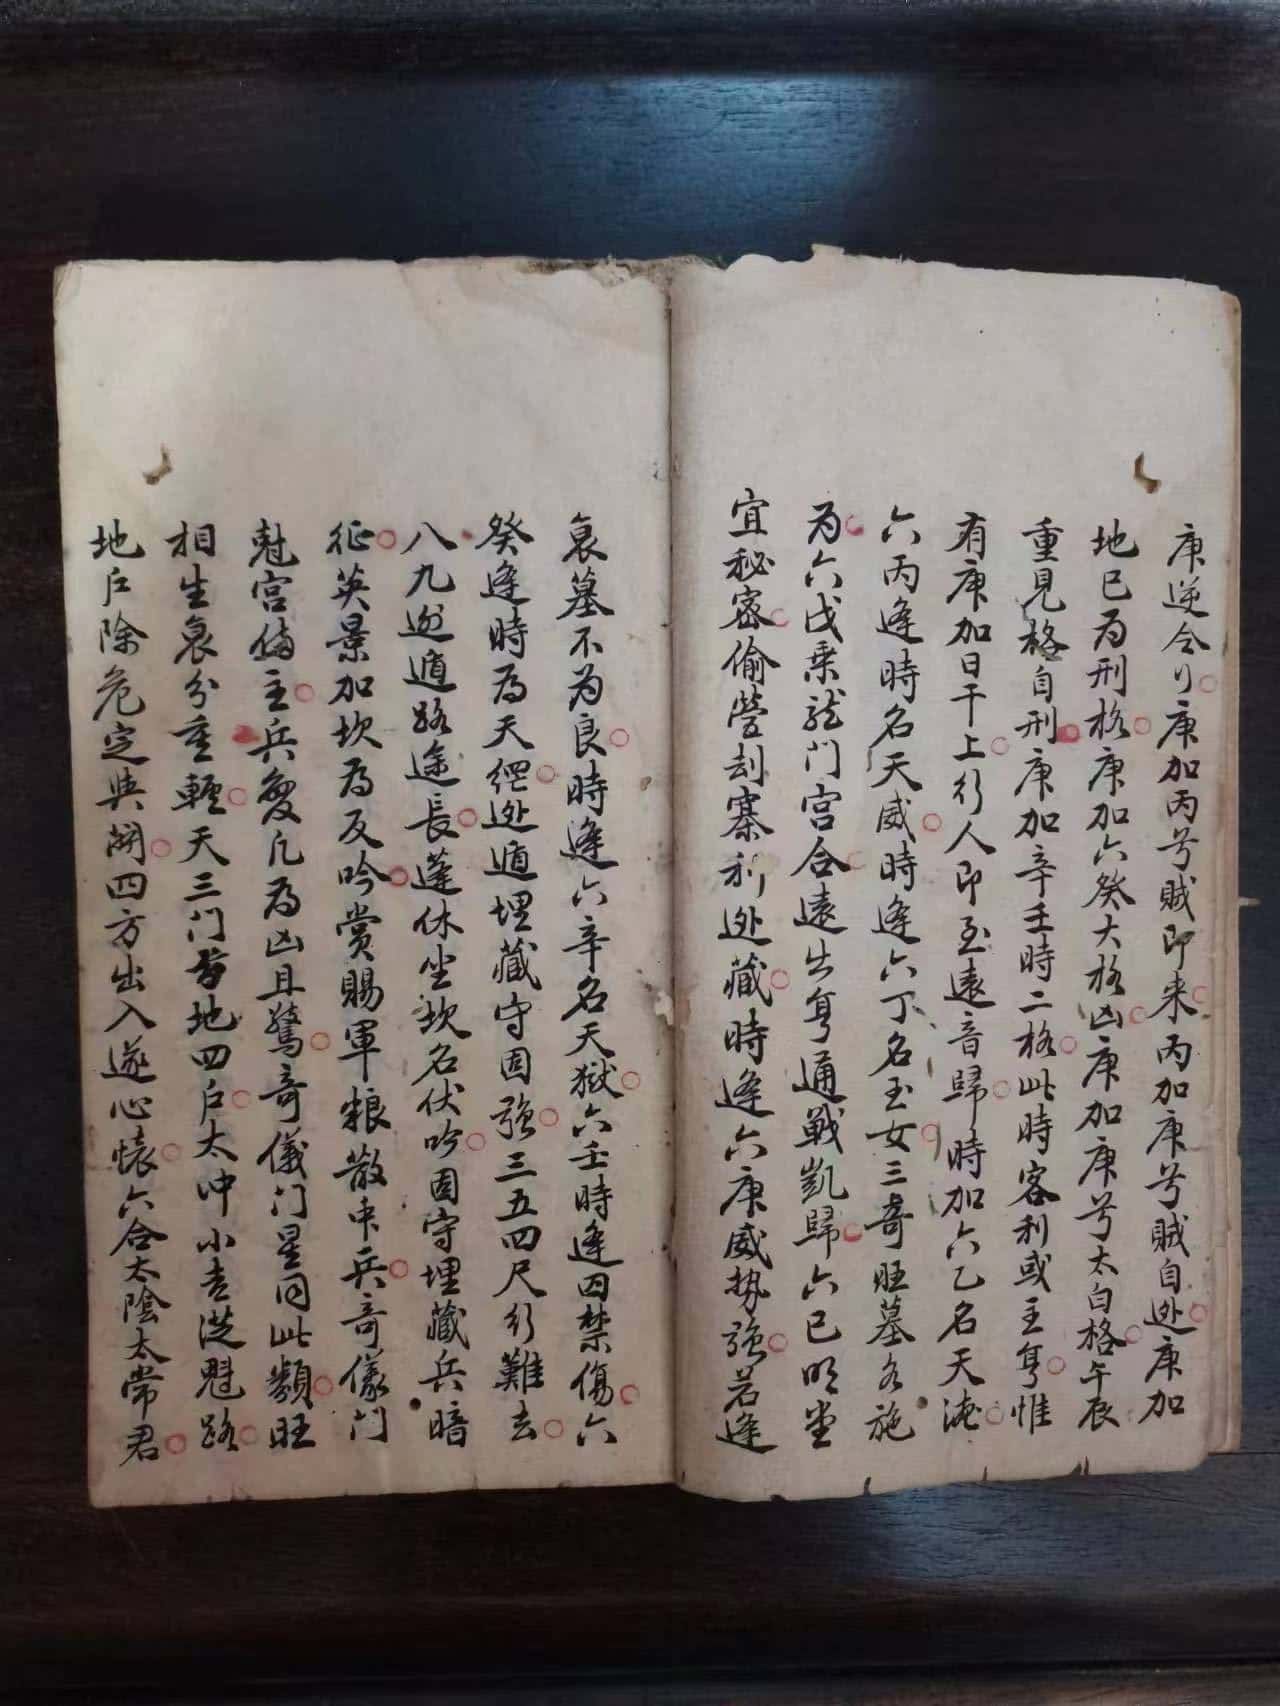 庚逆令行庚加丙兮賊即来丙加庚兮賊自迯庚加
地己為刑格庚加六癸大格凶庚加庚兮太白格午辰
重見格自刑庚加辛壬時二格此時客利或主身惟
有庚加日干上行人即至遠音歸時加六乙名天
六丙逢時名天威時逢六丁名玉女三奇旺墓各施
为六戊乗龍门宫合遠出身通戰凱歸六己明堂
宜秘密偷營刦寨利迯藏時逢六庚威势強若逢
衰墓不为良時逢六辛名天獄六壬時逢囚禁傷六
癸逢時為天網迯遁埋藏守固強三五四尺行難去
八九迯遁路途長蓬休坐坎名伏吟固守埋藏兵暗
征英景加坎為反吟賞賜軍粮散衆兵奇儀门
尅宫偏主兵憂凡為凶且驚奇儀门星同此類旺
相生衰分重輕天三门与地四戶太冲小吉從魁路
地戶除危定與開四方出入遂心懐六合太陰太常君